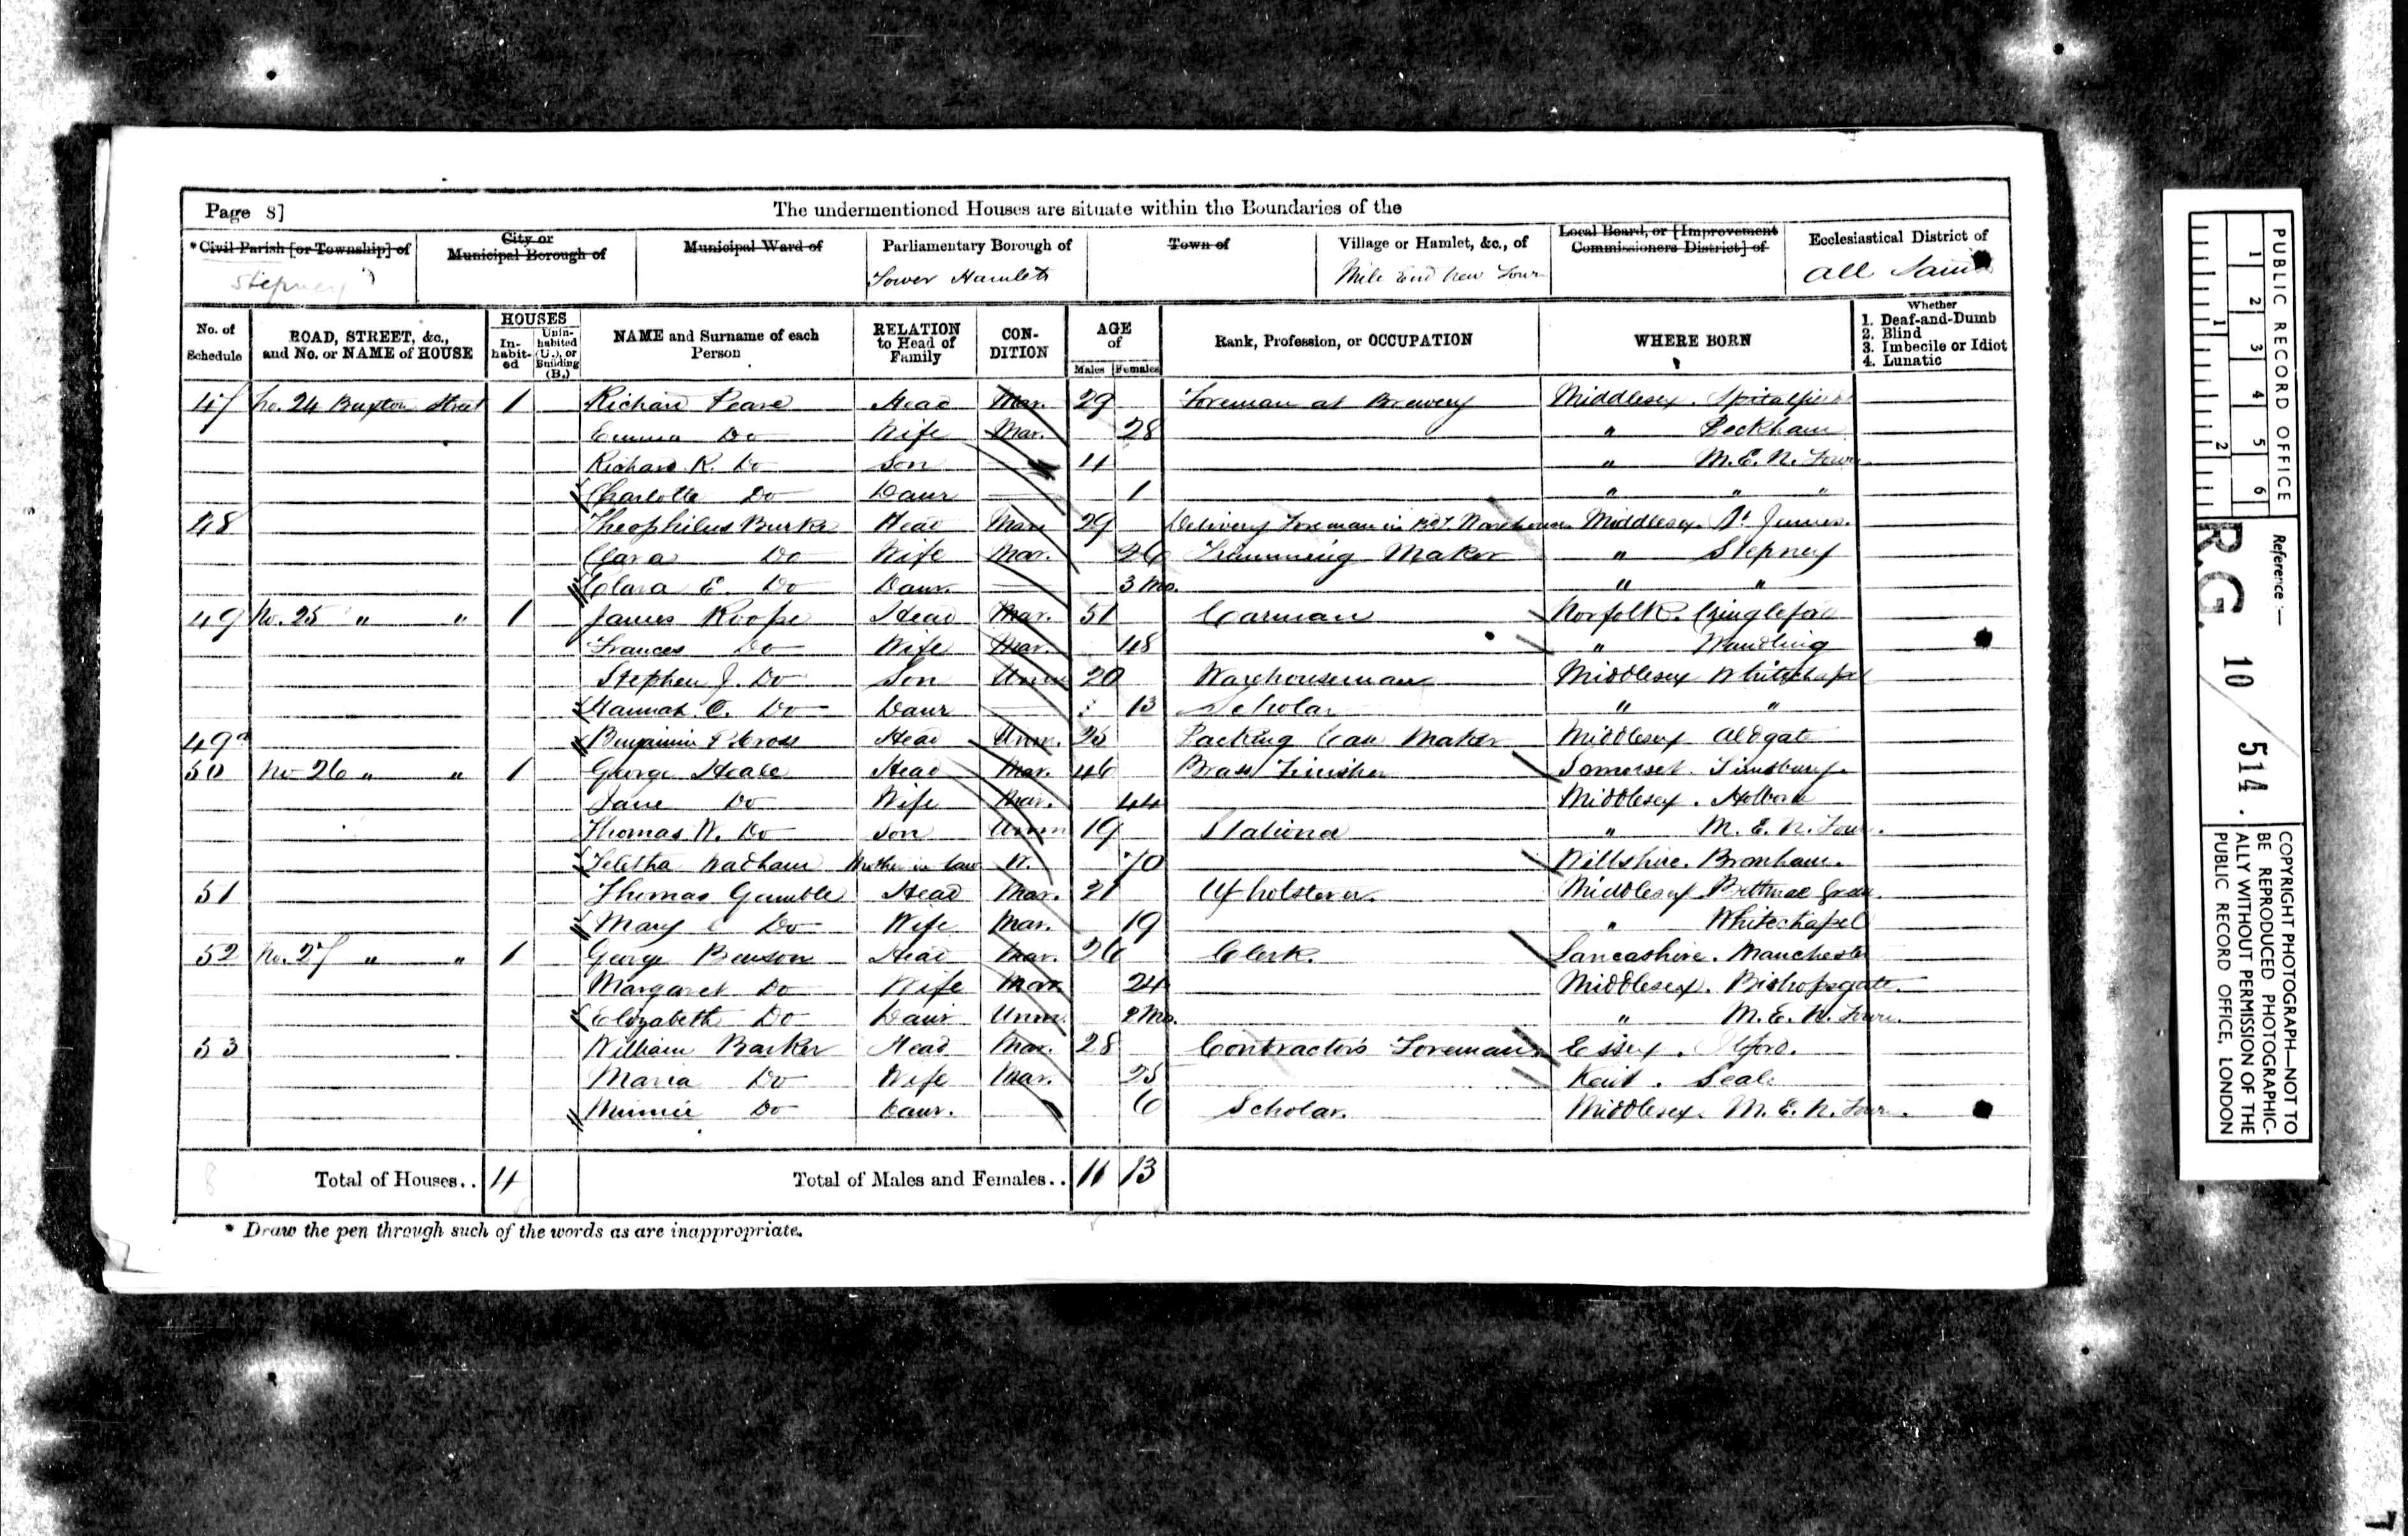 Page 8]
The undermentioned Houses are situate within the Boundaries of the
* Civil Parish [or Township] of
City or Municipal Borough of
Municipal Ward of
Parliamentary Borough of
Town of
Village or Hamlet, &c., of
Local Board, or [Improvement Commissioners District] of
Ecclesiastical District of
Stepney
Tower Hamlets
Mile End New Town
All Saints
No. of Schedule
ROAD, STREET, &c., and No. or NAME of HOUSE
HOUSES
In-habit-ed
Unin-habited (U.), or Building (B.)
NAME and Surname of each Person
RELATION to Head of Family
CON-DITION
AGE of
Males
Females
Rank, Profession, or OCCUPATION
WHERE BORN
Whether
1. Deaf-and-Dumb
2. Blind
3. Imbecile or Idiot
4. Lunatic
47 No. 24 Buxton Street 1 Richard Head Mar. 29 Foreman at Brewery Middlesex. Spitalfields
Emma Do Wife Mar. 28 " Peckham
Richard R. Do Son 4 " M.E.N. Town
Charlotte Do Daur 1 " " "
48 Theophilus Burke Head Mar 29 Delivery Foreman in Warehouse Middlesex. St James.
Clara Do Wife Mar. 26 Trimming Maker " Stepney
Clara E. Do Daur. 3 Mo. " "
49 No. 25 " " 1 James Roope Head Mar. 51 Carman Norfolk. Cringleford
Frances Do Wife Mar. 48 " Wendling
Stephen J. Do Son Unm 20 Warehouseman Middlesex Whitechapel
Hannah C. Do Daur 13 Scholar " "
49a Benjamin Head Unm. 25 Packing Case Maker Middlesex Aldgate
50 No 26 " " 1 George Head Mar. 46 Brass Finisher Somerset. Timsbury.
Jane Do Wife Mar. 44 Middlesex. Holborn
Thomas W. Do Son Unm 19 Stationer " M.E.N. Town.
Teletha Wadham Mother in law W. 70 Wiltshire. Bromham.
51 Thomas Gamble Head Mar. 21 Upholsterer. Middlesex Bethnal Green
Mary C Do Wife Mar. 19 " Whitechapel
52 No. 27 " " 1 George Benson Head Mar. 26 Clerk. Lancashire. Manchester
Margaret Do Wife Mar. 24 Middlesex. Bishopsgate.
Elizabeth Do Daur Unm. 2 Mo. " M.E.N. Town.
53 William Barker Head Mar. 28 Contractor's Foreman Essex. Ilford.
Maria Do Wife Mar. 25 Kent. Seal
Minnie Do Daur. 6 Scholar. Middlesex. M.E.N. Town.
Total of Houses.. 4
Total of Males and Females.. 11 13
* Draw the pen through such of the words as are inappropriate.
PUBLIC RECORD OFFICE
1 2 3 4 5 6
1 2
Reference:—
R.G. 10 / 514.
COPYRIGHT PHOTOGRAPH—NOT TO BE REPRODUCED PHOTOGRAPHIC-ALLY WITHOUT PERMISSION OF THE PUBLIC RECORD OFFICE, LONDON